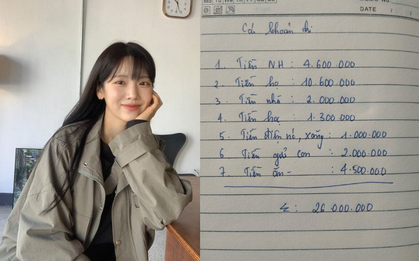 DATE
Các khoản chi
1. Tiền NH : 4.600.000
2. Tiền họ : 10.600.000
3. Tiền nhà : 2.000.000
4. Tiền học : 1.300.000
5. Tiền điện nc, xăng : 1.000.000
6. Tiền gửi con : 2.000.000
7. Tiền ăn - : 4.500.000
Σ : 26.000.000